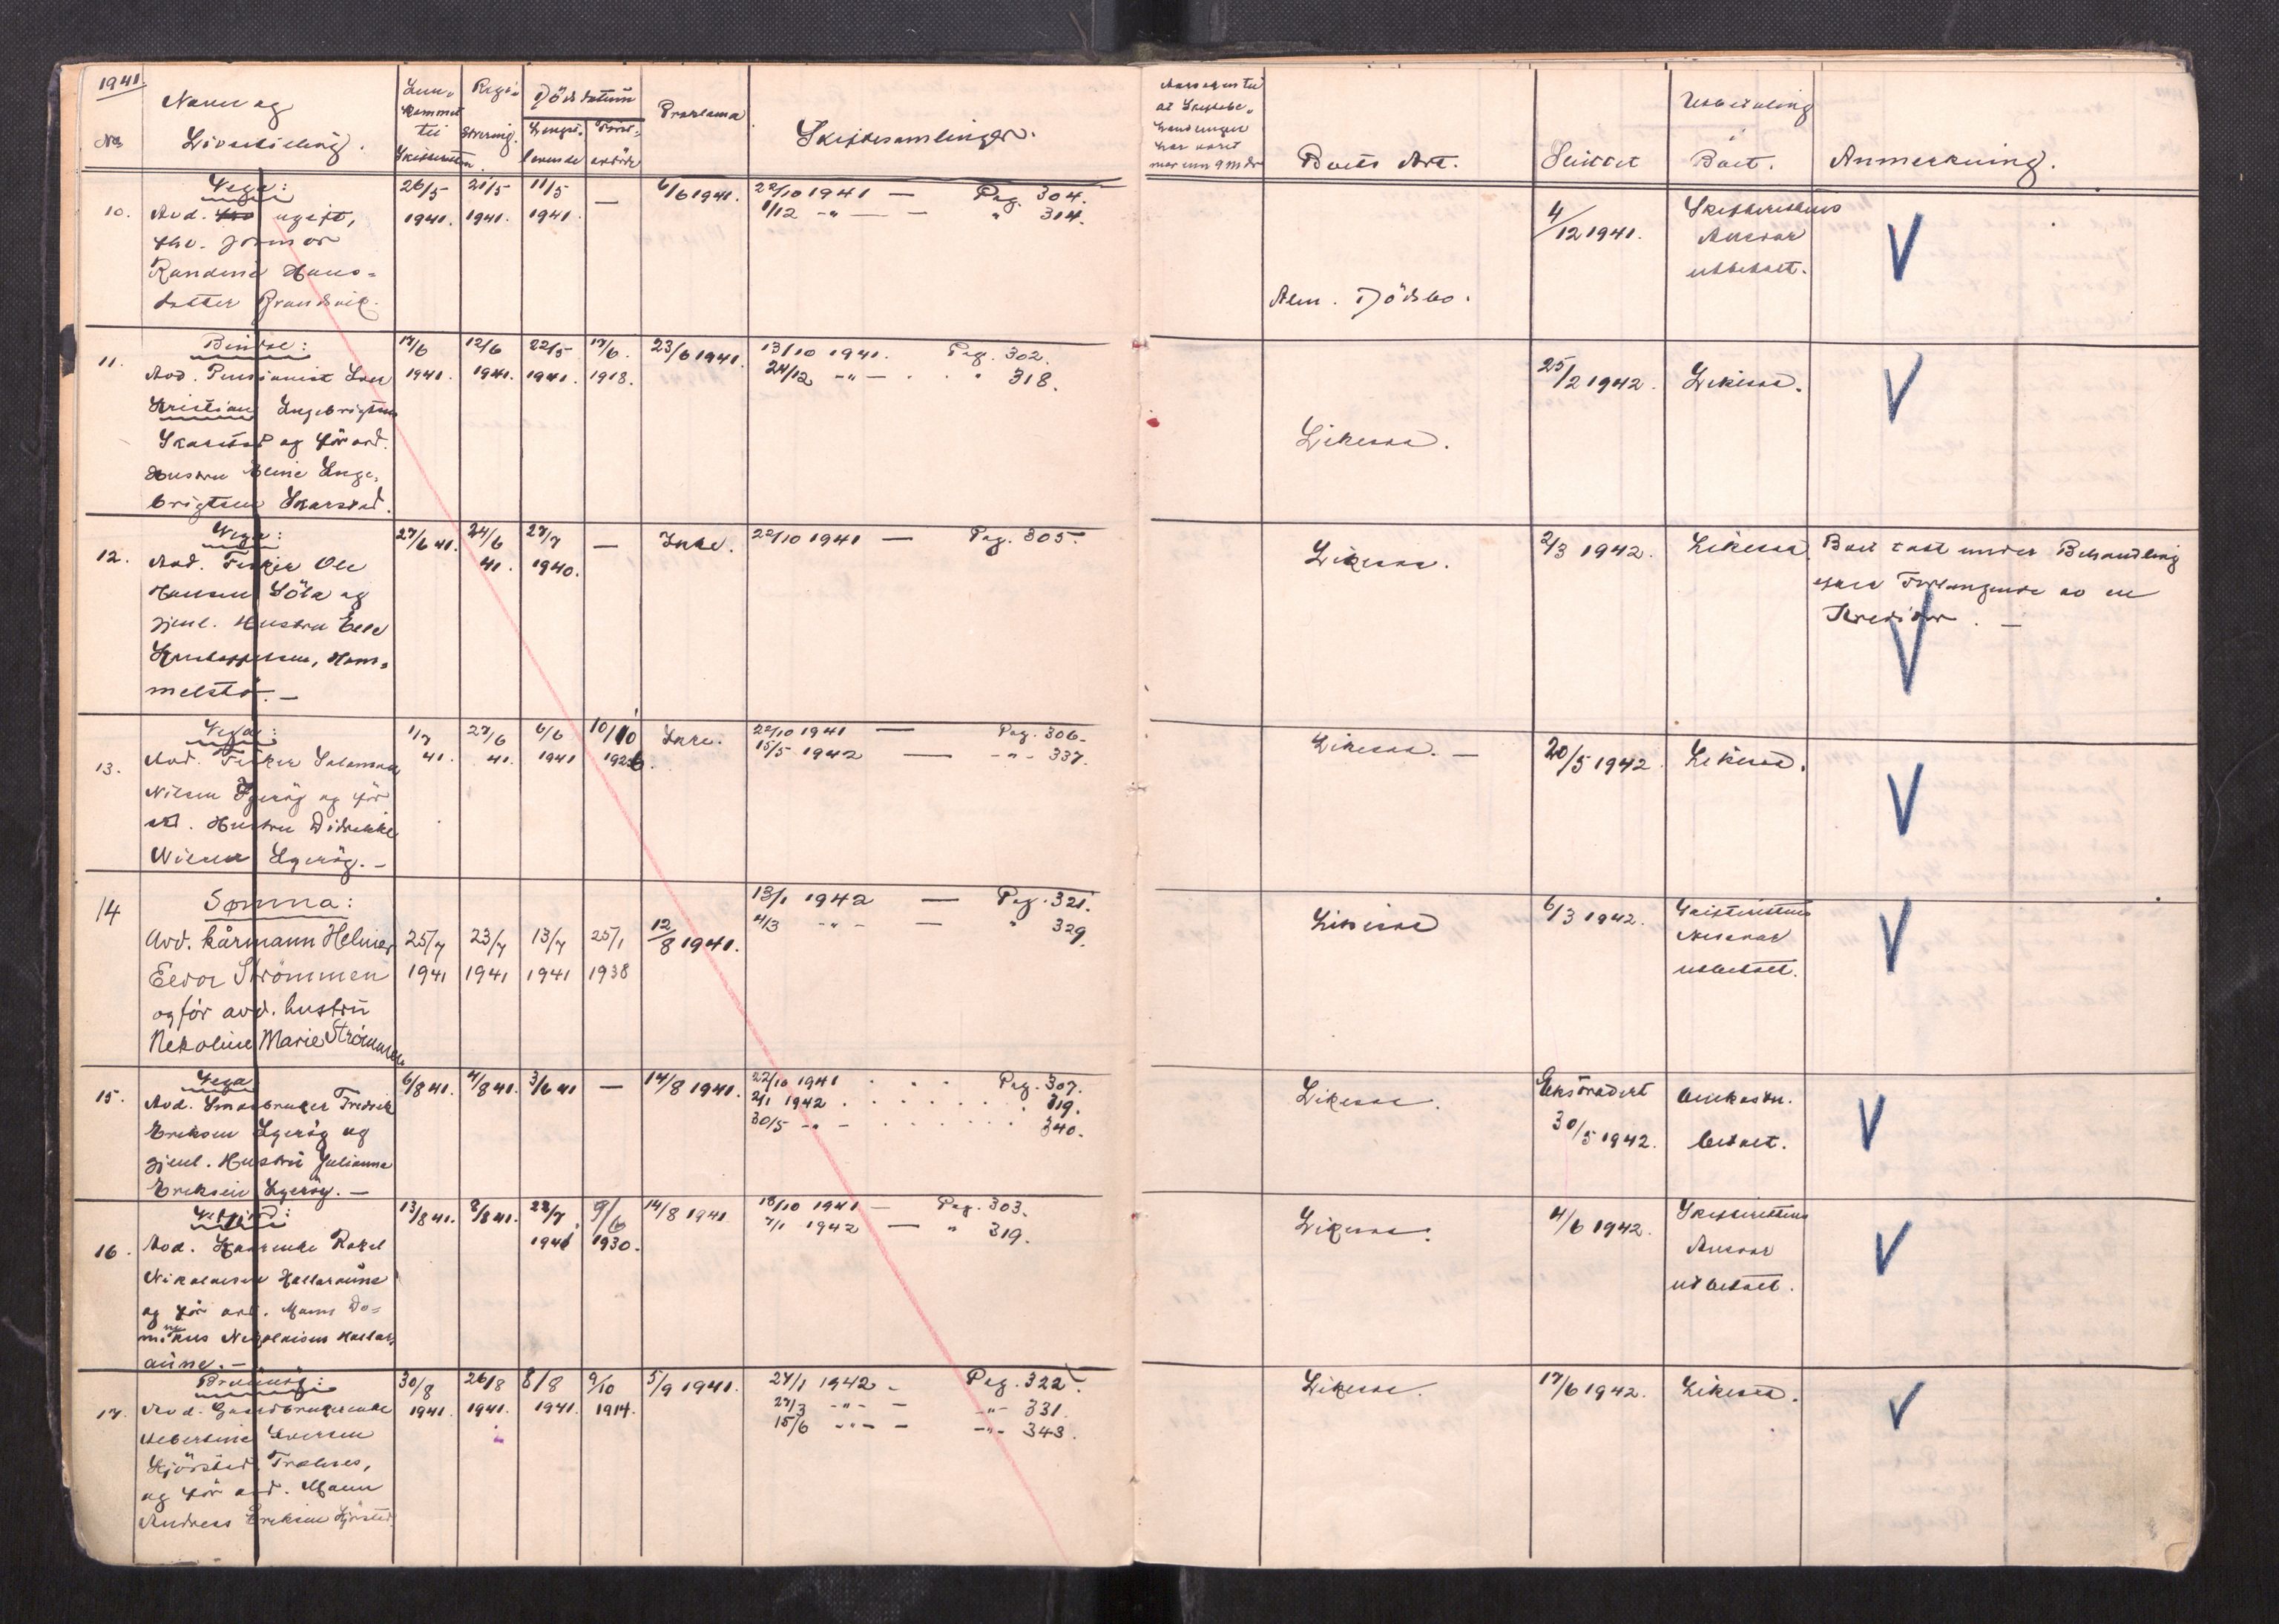 1941.
No
Navn og
Livsstilling.
Inn-
kommet
til
Skifteretten
Regi-
strering.
Dödsdatum
Lengst-
levende
Först-
avdöde
Proklama
Skiftesamlinger.
at Skiftebe-
handlingen
har varet
mer enn 9 mdr
Boets Art.
Sluttet
Utbetaling
Boet.
Anmerkning.
10.
Vega:
Avd. ugift,
fhv. jormor
Randine Hans-
datter Brandvik.
26/5
1941.
21/5
1941.
11/5
1941.
—
6/6 1941.
22/10 1941 — Pag. 304.
1/12 -"- — " 314.
Alm. Dödsbo.
4/12 1941.
Skifterettens
Ansvar
utbetalt.
11.
Bindal:
Avd. Pensionist
Kristian Ingebrigtsen
Skarstad og för avd.
Hustru Eline Inge-
brigtsen Skarstad.
17/6
1941.
12/6
1941.
22/5
1941.
17/6.
1918.
23/6 1941.
13/10 1941. Pag. 302.
24/12 -"- . . " 318.
Likessa.
25/2 1942.
Likessa.
12.
Vega:
Avd. Fisker Ole
Hansen Söla og
gjenl. Hustru
Hom-
melstö. —
27/6 41.
24/6
41.
27/7
1940.
—
Inkl.
22/10 1941 — Pag. 305.
Likessa.
2/3 1942.
Likessa
Boet tatt under Behandling
efter Forlangende av en
Kreditor. —
13.
Vega:
Avd. Fisker
Nilsen Igeröy og för
avd. Hustru Didrikke
Nilsen Igeröy. —
1/7
41.
27/6
41.
6/6
1941
10/10
1926.
Inkl.
22/10 1941 — Pag. 306.
15/5 1942 — -"- 337.
Likessa. —
20/5 1942.
Likessa.
14
Sømna:
Avd. kårmann Helmer
Eedor Strømmen
og før avd. hustru
Nekoline Marie Strømmen
25/7
1941
23/7
1941
13/7
1941
25/1
1938
12/8 1941.
13/1 1942 — Pag. 321.
4/3 -"- — " 329.
Likessa
6/3 1942.
Skifterettens
Ansvar
utbetalt.
15.
Vega
Avd. Småbruker Fredrik
Eriksen Igeröy og
gjenl. Hustru Julianna
Eriksen Igeröy. —
6/8 41.
4/8 41.
3/6 41
—
14/8 1941.
22/10 1941 . . . Pag. 307.
2/1 1942 . . . . . . 319.
30/5 -"- . . . . . . 340.
Likessa.
Ekstradert
30/5 1942.
Omkostn.
betalt.
16.
Avd. Kaarenke Rakel
Nikolaisen Hallaraune
og för avd. Mann Do-
minikus Nikolaisen Hallar-
aune. —
13/8 41.
8/8 41.
28/7
1941
9/6
1930.
14/8 1941
18/10 1941 — Pag. 303.
7/1 1942 — " 319.
Likessa.
4/6 1942.
Skifterettens
Ansvar
utbetalt.
17.
Brönnöy:
Avd. Gaardbrukerenke
Iversen
og för avd. Mann
Andreas Eriksen
30/8
1941.
26/8
1941.
8/8
1941.
9/10
1914.
5/9 1941.
27/1 1942 - Pag. 322.
27/3 -"- — -"- 331.
15/6 -"- — -"- 343.
Likessa.
17/6 1942.
Likessa.